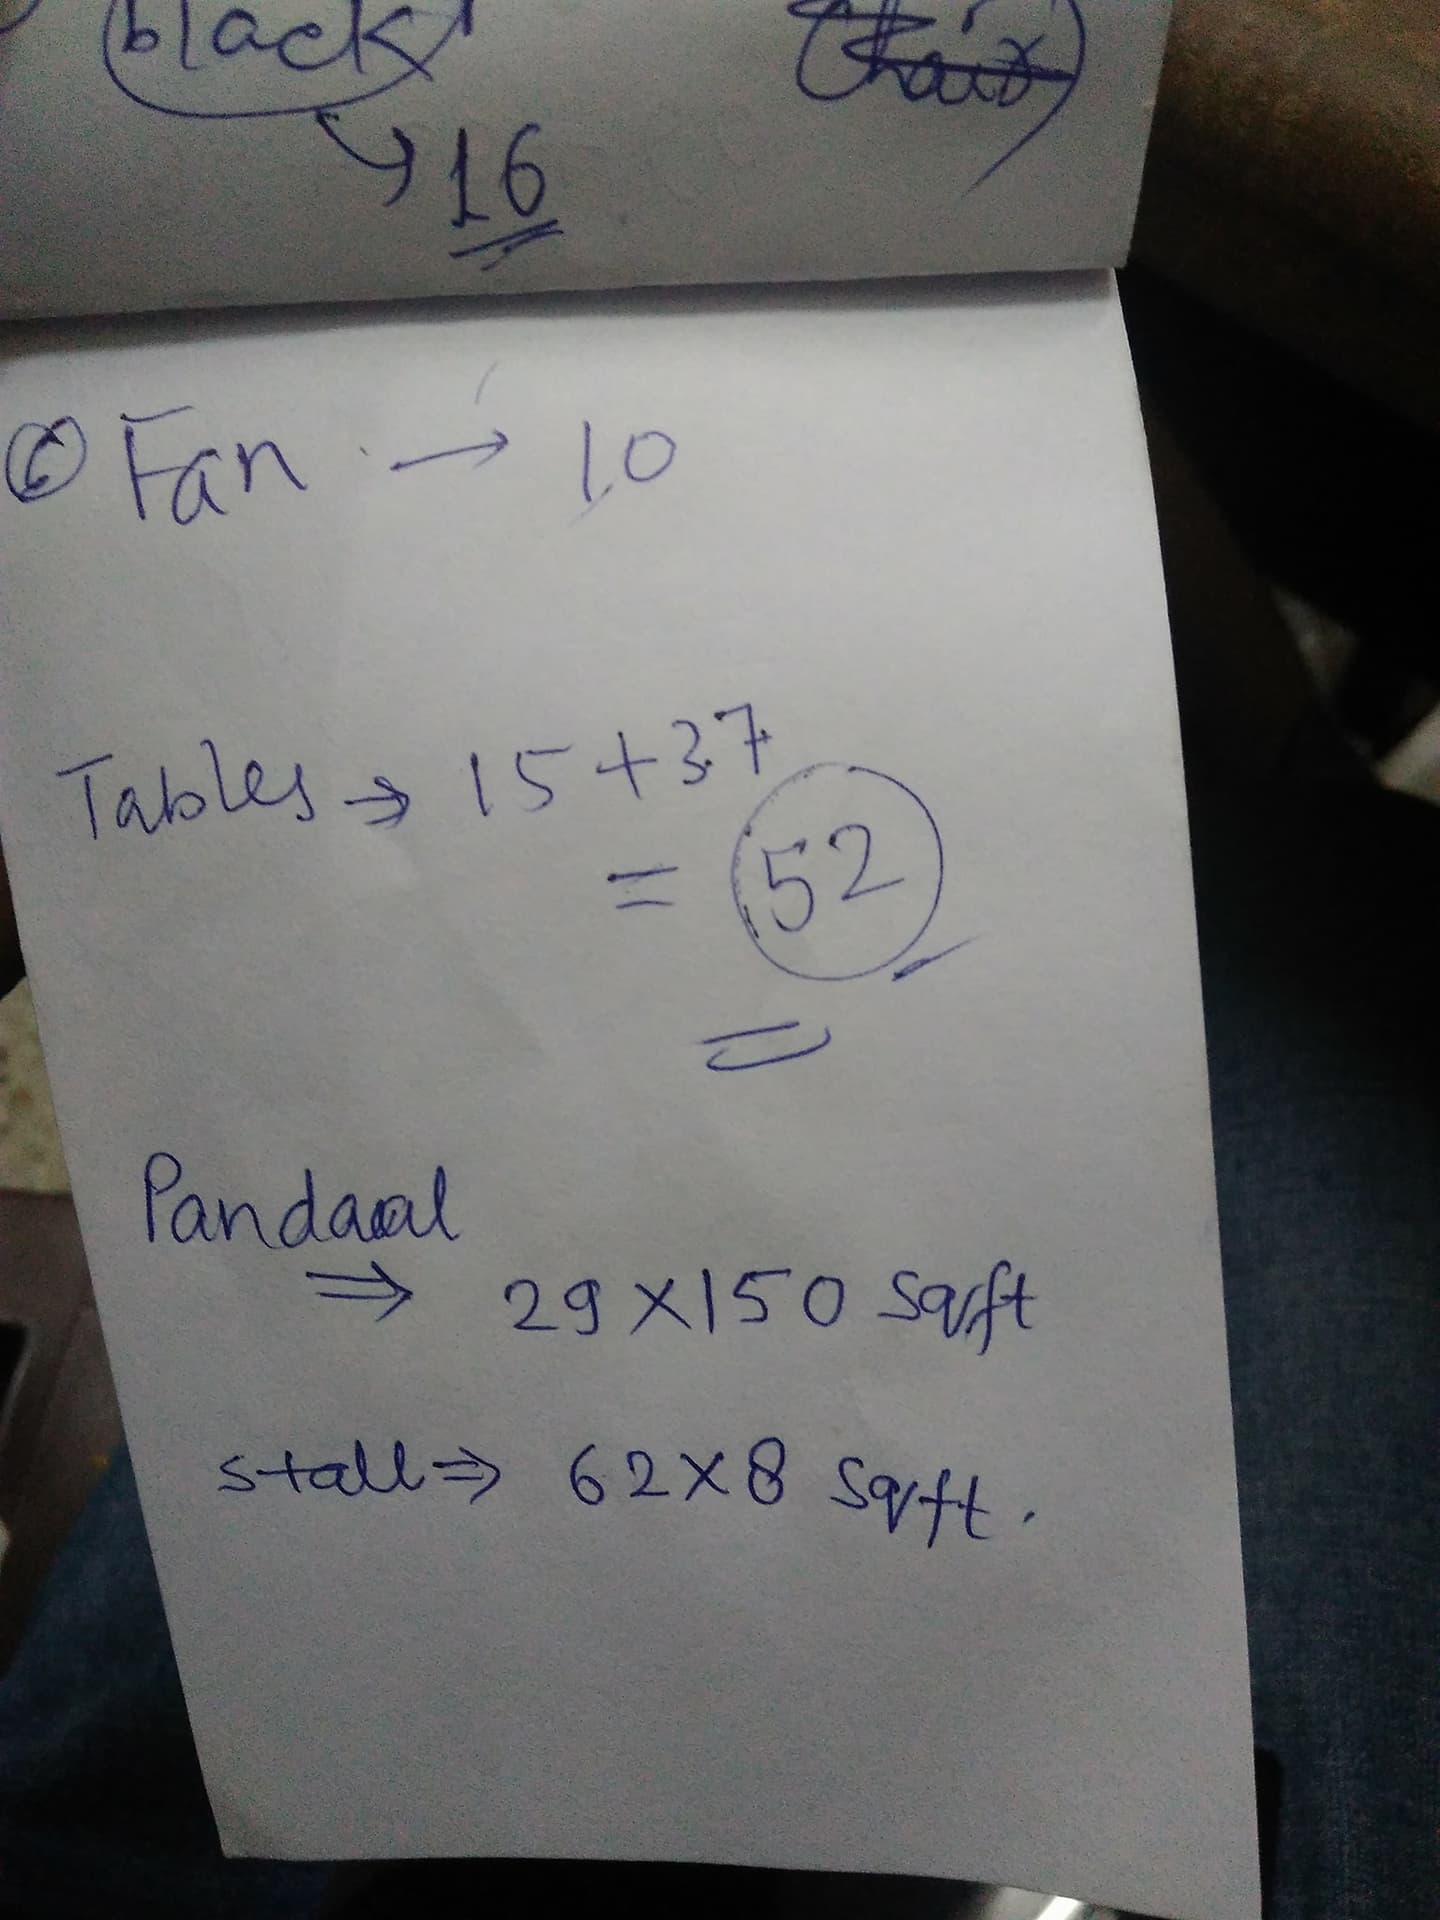 black
Chair
→ 16
⑥ Fan → 10
Tables → 15+37
= 52
Pandaal
⇒ 29×150 Sqft
stall ⇒ 62×8 Sqft.